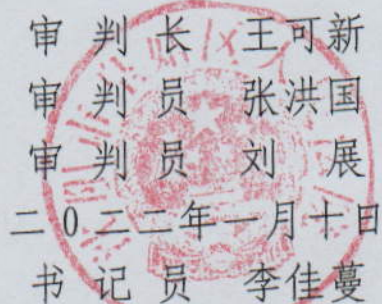 审 判 长 王可新
审 判 员 张洪国
审 判 员 刘 展
二0二二年一月十日
书 记 员 李佳蔓